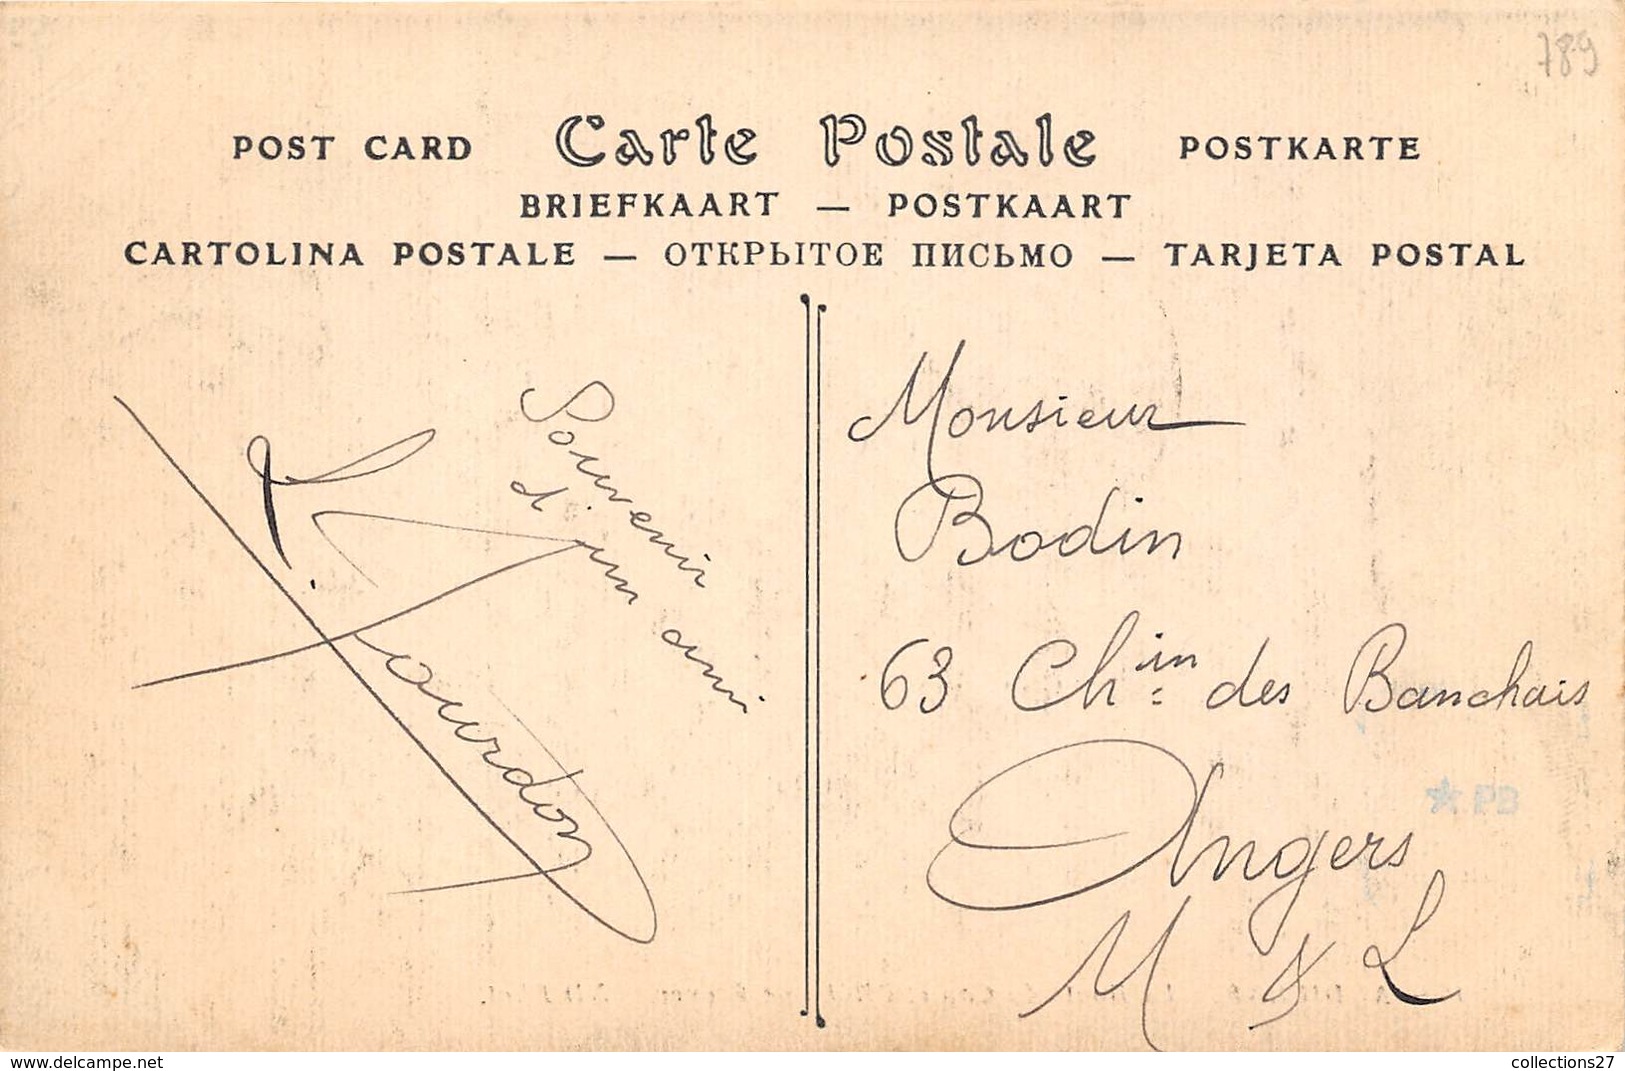 789
POST CARD Carte Postale POSTKARTE
BRIEFKAART — POSTKAART
CARTOLINA POSTALE — ОТКРЫТОЕ ПИСЬМО — TARJETA POSTAL
Souvenir
d'un ami
Jourdon
Monsieur
Bodin
63 Chin des Banchais
Angers
M & L
PB
www.delcampe.net
collections27